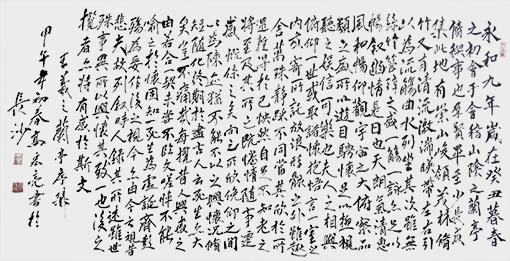 永和九年歲在癸丑暮春
之初會于會稽山陰之蘭亭
脩稧事也群賢畢至少長咸
集此地有崇山峻領茂林脩
竹又有清流激湍暎帶左右引
以為流觴曲水列坐其次雖無
絲竹管弦之盛一觴一詠亦足以
暢敘幽情是日也天朗氣清惠
風和暢仰觀宇宙之大俯察品
類之盛所以遊目騁懷足以極視
聽之娛信可樂也夫人之相與
俯仰一世或取諸懷抱悟言一室之
內或寄所託放浪形骸之外雖趣
舍萬殊靜躁不同當其欣於所
遇蹔得於己快然自足不知老之
將至及其所之既惓情隨事遷
感慨係之矣向之所欣俛仰之間
以為陳迹猶不能不以之興懷況脩
短隨化終期於盡古人云死生亦大
矣豈不痛哉每攬昔人興感之
由若合一契未嘗不臨文嗟悼不能
喻之於懷固知一死生為虛誕齊彭
殤為妄作後之視今亦由今之視昔
悲夫故列敘時人錄其所述雖世
殊事異所以興懷其致一也後之
攬者亦將有感於斯文
王羲之蘭亭序
甲午年初春高宏亮書於
長沙